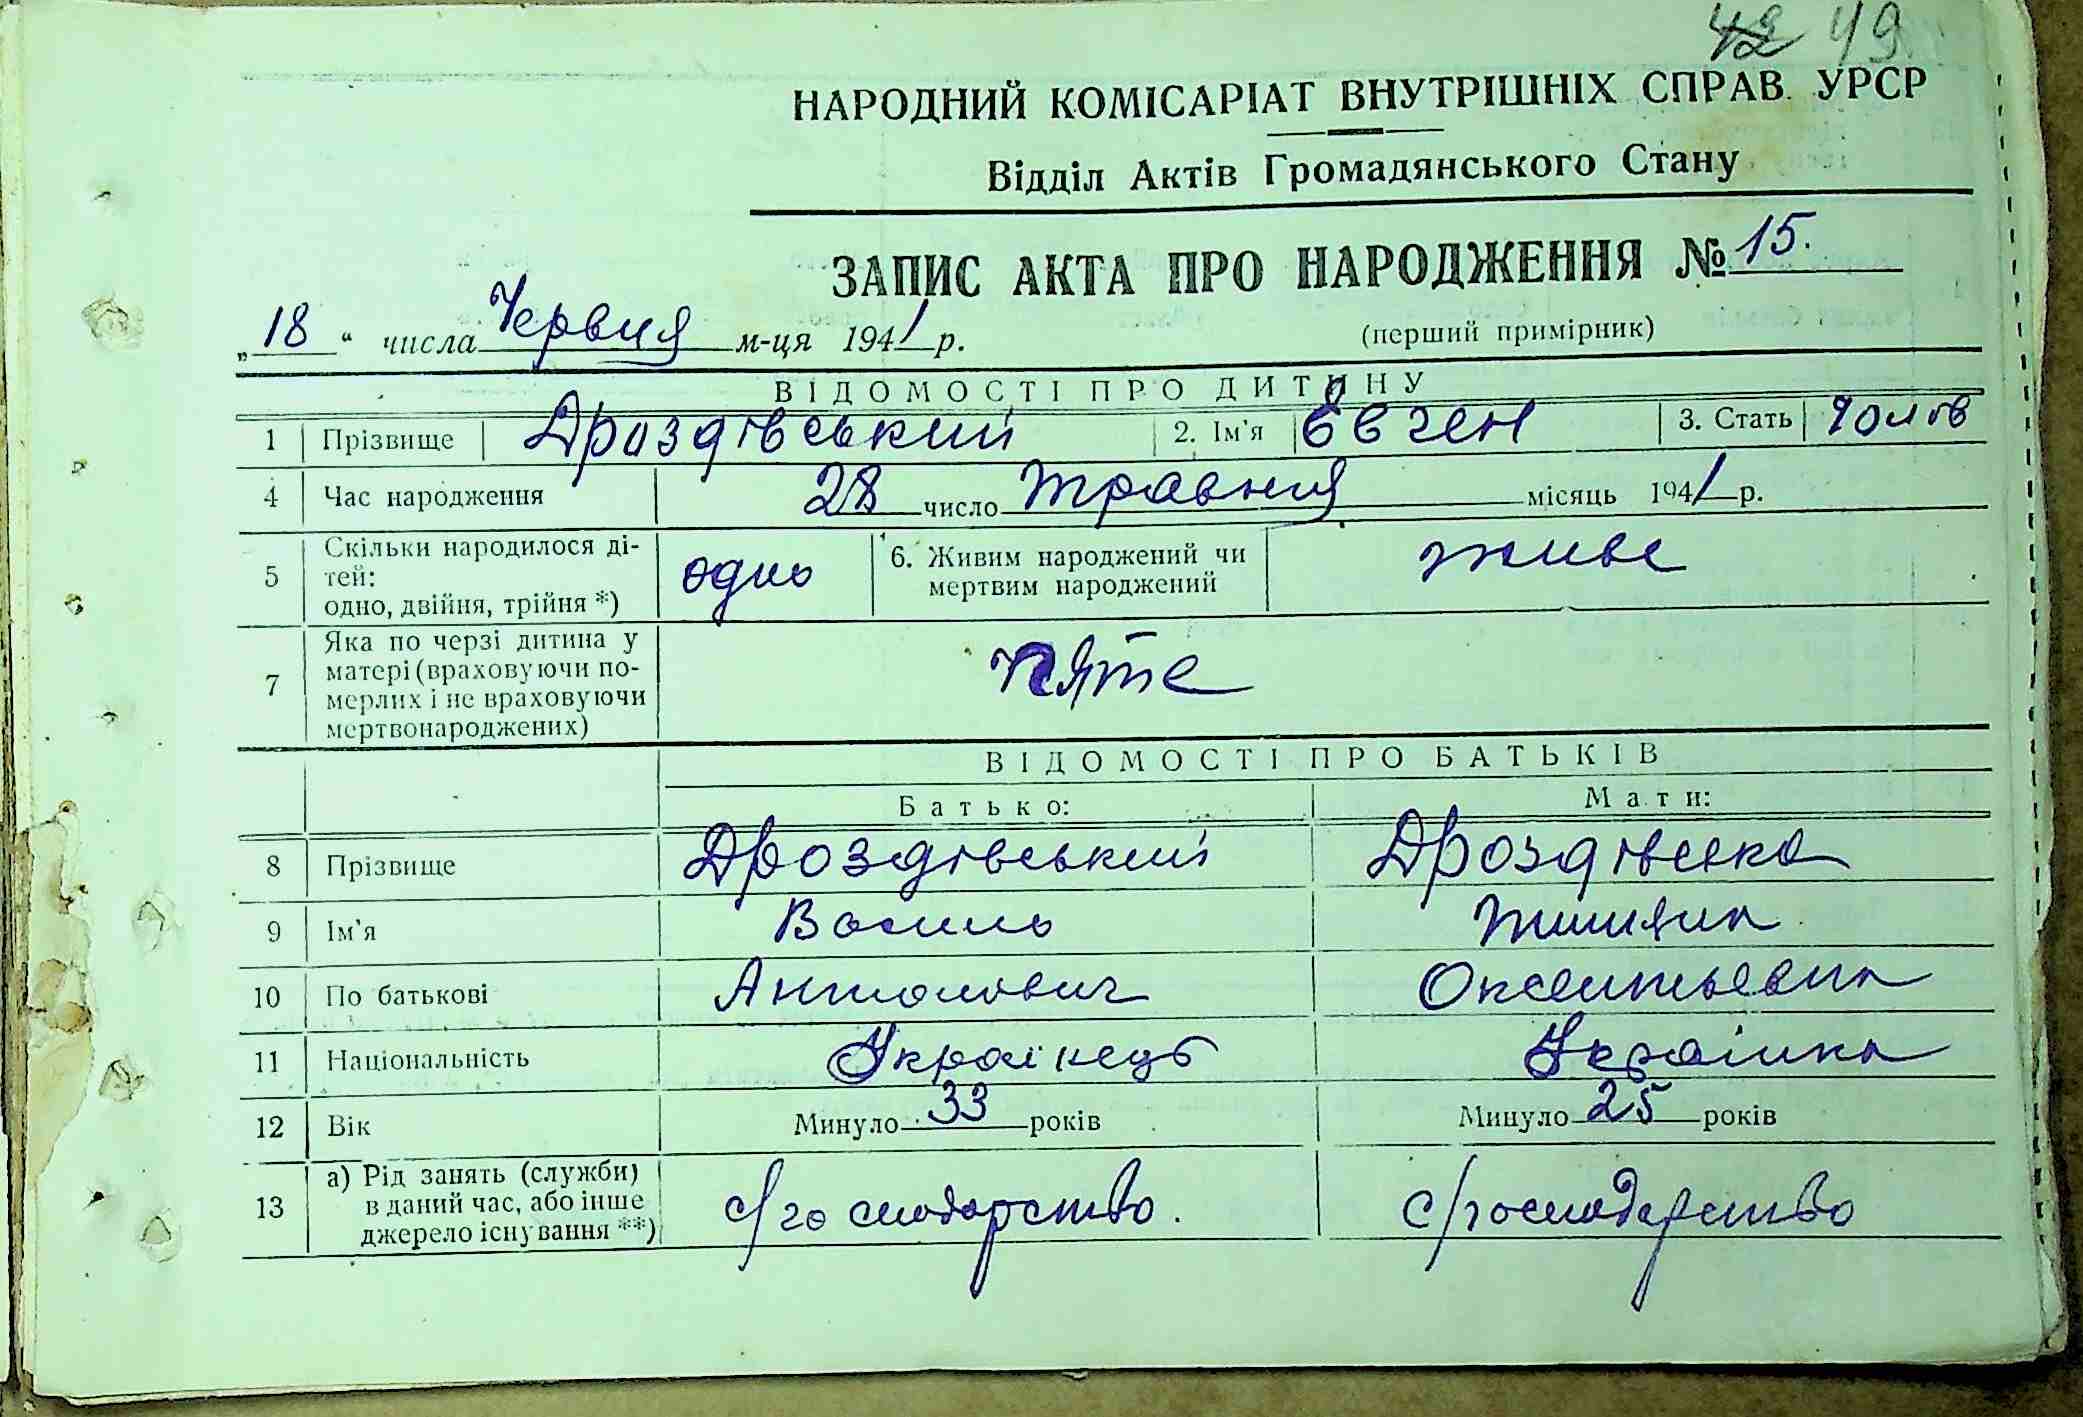 42 49
НАРОДНИЙ КОМІСАРІАТ ВНУТРІШНІХ СПРАВ УРСР
Відділ Актів Громадянського Стану
ЗАПИС АКТА ПРО НАРОДЖЕННЯ № 15.
„18“ числа Червня м-ця 1941 р. (перший примірник)
ВІДОМОСТІ ПРО ДИТИНУ
1 Прізвище Дроздівський 2. Ім'я Євген 3. Стать чолов
4 Час народження 28 число травня місяць 1941 р.
5 Скільки народилося ді-
тей:
одно, двійня, трійня *) одно 6. Живим народжений чи
мертвим народжений живе
7 Яка по черзі дитина у
матері (враховуючи по-
мерлих і не враховуючи
мертвонароджених) пяте
ВІДОМОСТІ ПРО БАТЬКІВ
Батько: Мати:
8 Прізвище Дроздівський Дроздівска
9 Ім'я Василь
10 По батькові Антонович Оксентьевна
11 Національність Українець Українка
12 Вік Минуло 33 років Минуло 25 років
13 а) Рід занять (служби)
в даний час, або інше
джерело існування **) с/господарство. с/господарство